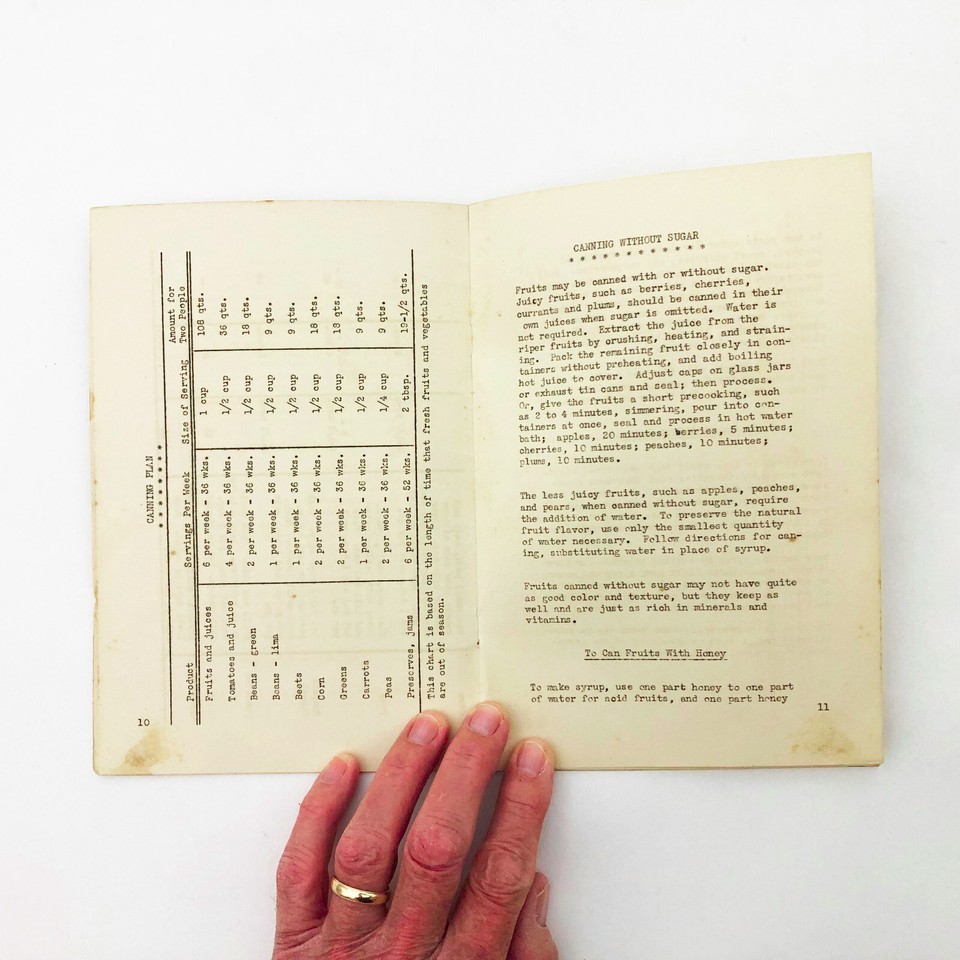 CANNING PLAN
* * * * * * * *
Product Servings Per Week Size of Serving Amount for Two People
Fruits and juices 6 per week - 36 wks. 1 cup 108 qts.
Tomatoes and juice 4 per week - 36 wks. 1/2 cup 36 qts.
Beans - green 2 per week - 36 wks. 1/2 cup 18 qts.
Beans - lima 1 per week - 36 wks. 1/2 cup 9 qts.
Beets 1 per week - 36 wks. 1/2 cup 9 qts.
Corn 2 per week - 36 wks. 1/2 cup 18 qts.
Greens 2 per week - 36 wks. 1/2 cup 18 qts.
Carrots 1 per week - 36 wks. 1/2 cup 9 qts.
Peas 2 per week - 36 wks. 1/4 cup 9 qts.
Preserves, jams 6 per week - 52 wks. 2 tbsp. 19-1/2 qts.
This chart is based on the length of time that fresh fruits and vegetables
are out of season.
10
CANNING WITHOUT SUGAR
* * * * * * * * * * * *
Fruits may be canned with or without sugar.
Juicy fruits, such as berries, cherries,
currants and plums, should be canned in their
own juices when sugar is omitted. Water is
not required. Extract the juice from the
riper fruits by crushing, heating, and strain-
ing. Pack the remaining fruit closely in con-
tainers without preheating, and add boiling
hot juice to cover. Adjust caps on glass jars
or exhaust tin cans and seal; then process.
Or, give the fruits a short precooking, such
as 2 to 4 minutes, simmering, pour into con-
tainers at once, seal and process in hot water
bath; apples, 20 minutes; berries, 5 minutes;
cherries, 10 minutes; peaches, 10 minutes;
plums, 10 minutes.
The less juicy fruits, such as apples, peaches,
and pears, when canned without sugar, require
the addition of water. To preserve the natural
fruit flavor, use only the smallest quantity
of water necessary. Follow directions for can-
ing, substituting water in place of syrup.
Fruits canned without sugar may not have quite
as good color and texture, but they keep as
well and are just as rich in minerals and
vitamins.
To Can Fruits With Honey
To make syrup, use one part honey to one part
of water for acid fruits, and one part honey
11